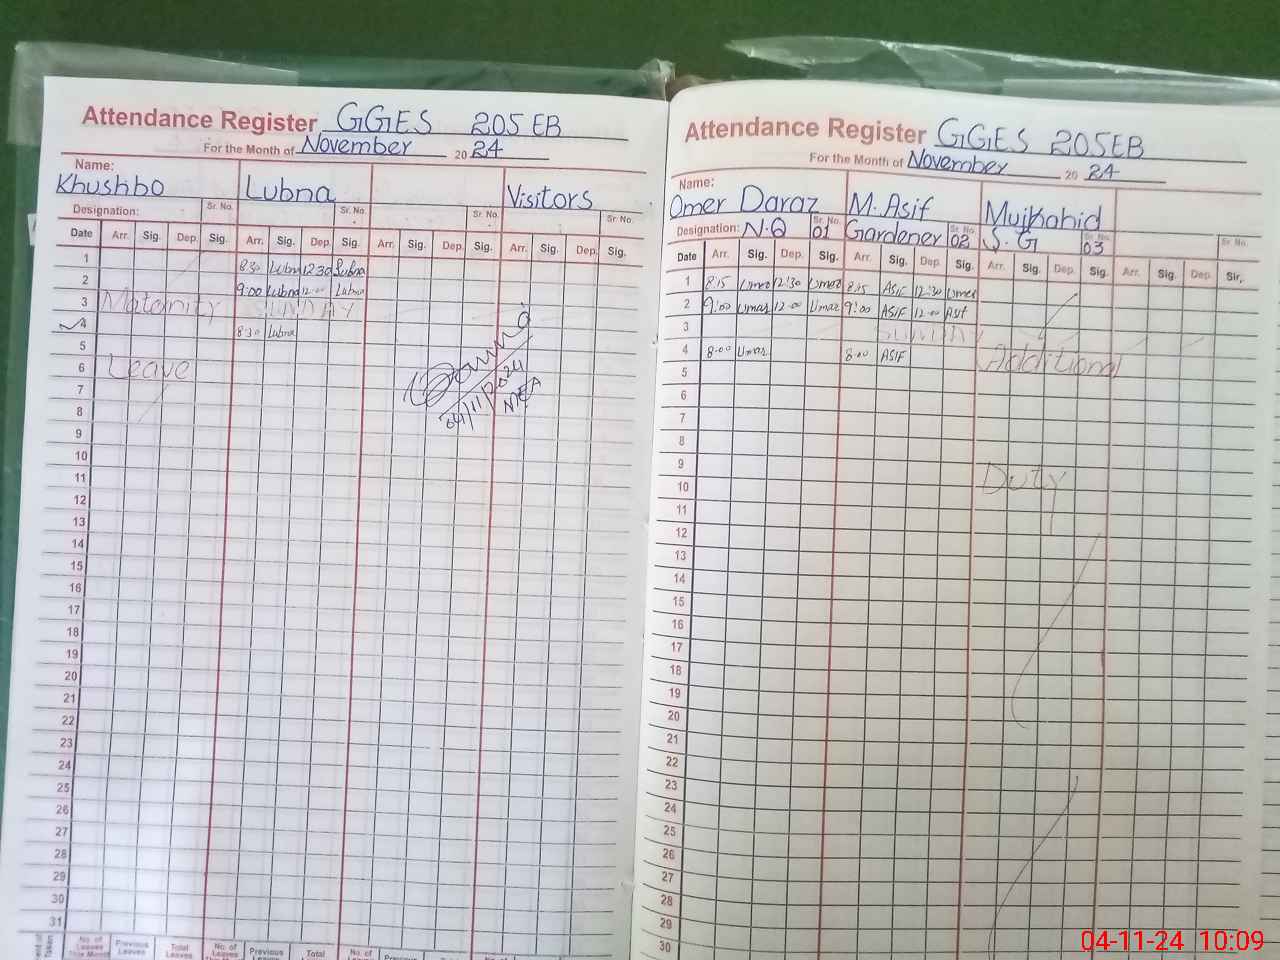 Attendance Register GGES 205 EB
For the Month of November 2024
Name:
Khushbo Lubna Visitors
Designation: Sr. No. Sr. No. Sr. No. Sr. No.
Date Arr. Sig. Dep. Sig. Arr. Sig. Dep. Sig. Arr. Sig. Dep. Sig. Arr. Sig. Dep. Sig.
1 8:30 Lubna 12:30 Lubna
2 9:00 Lubna 12:00 Lubna
3 Matarnity SUNDAY
4 8:30 Lubna
5
6 Leave
7
8
04/11/2024
MEA
9
10
11
12
13
14
15
16
17
18
19
20
21
22
23
24
25
26
27
28
29
30
31
No. of Leaves This Month Previous Leaves Total Leaves No. of Leaves This Month Previous Leaves Total
Attendance Register GGES 205EB
For the Month of November 2024
Name:
Omer Daraz M. Asif Mujhahid
Designation: N.Q Sr. No. 01 Gardener Sr. No. 02 S.G Sr. No. 03 Sr. No.
Date Arr. Sig. Dep. Sig. Arr. Sig. Dep. Sig. Arr. Sig. Dep. Sig. Arr. Sig. Dep. Sir,
1 8:15 Umar 12:30 Umar 8:15 ASIF 12:30
2 9:00 Umar 12:00 Umar 9:00 ASIF 12:00 Asif
3 SUNDAY
4 8:00 Umar 8:00 ASIF Additional
5
6
7
8
9
10 Duty
11
12
13
14
15
16
17
18
19
20
21
22
23
24
25
26
27
28
29
30
04-11-24 10:09